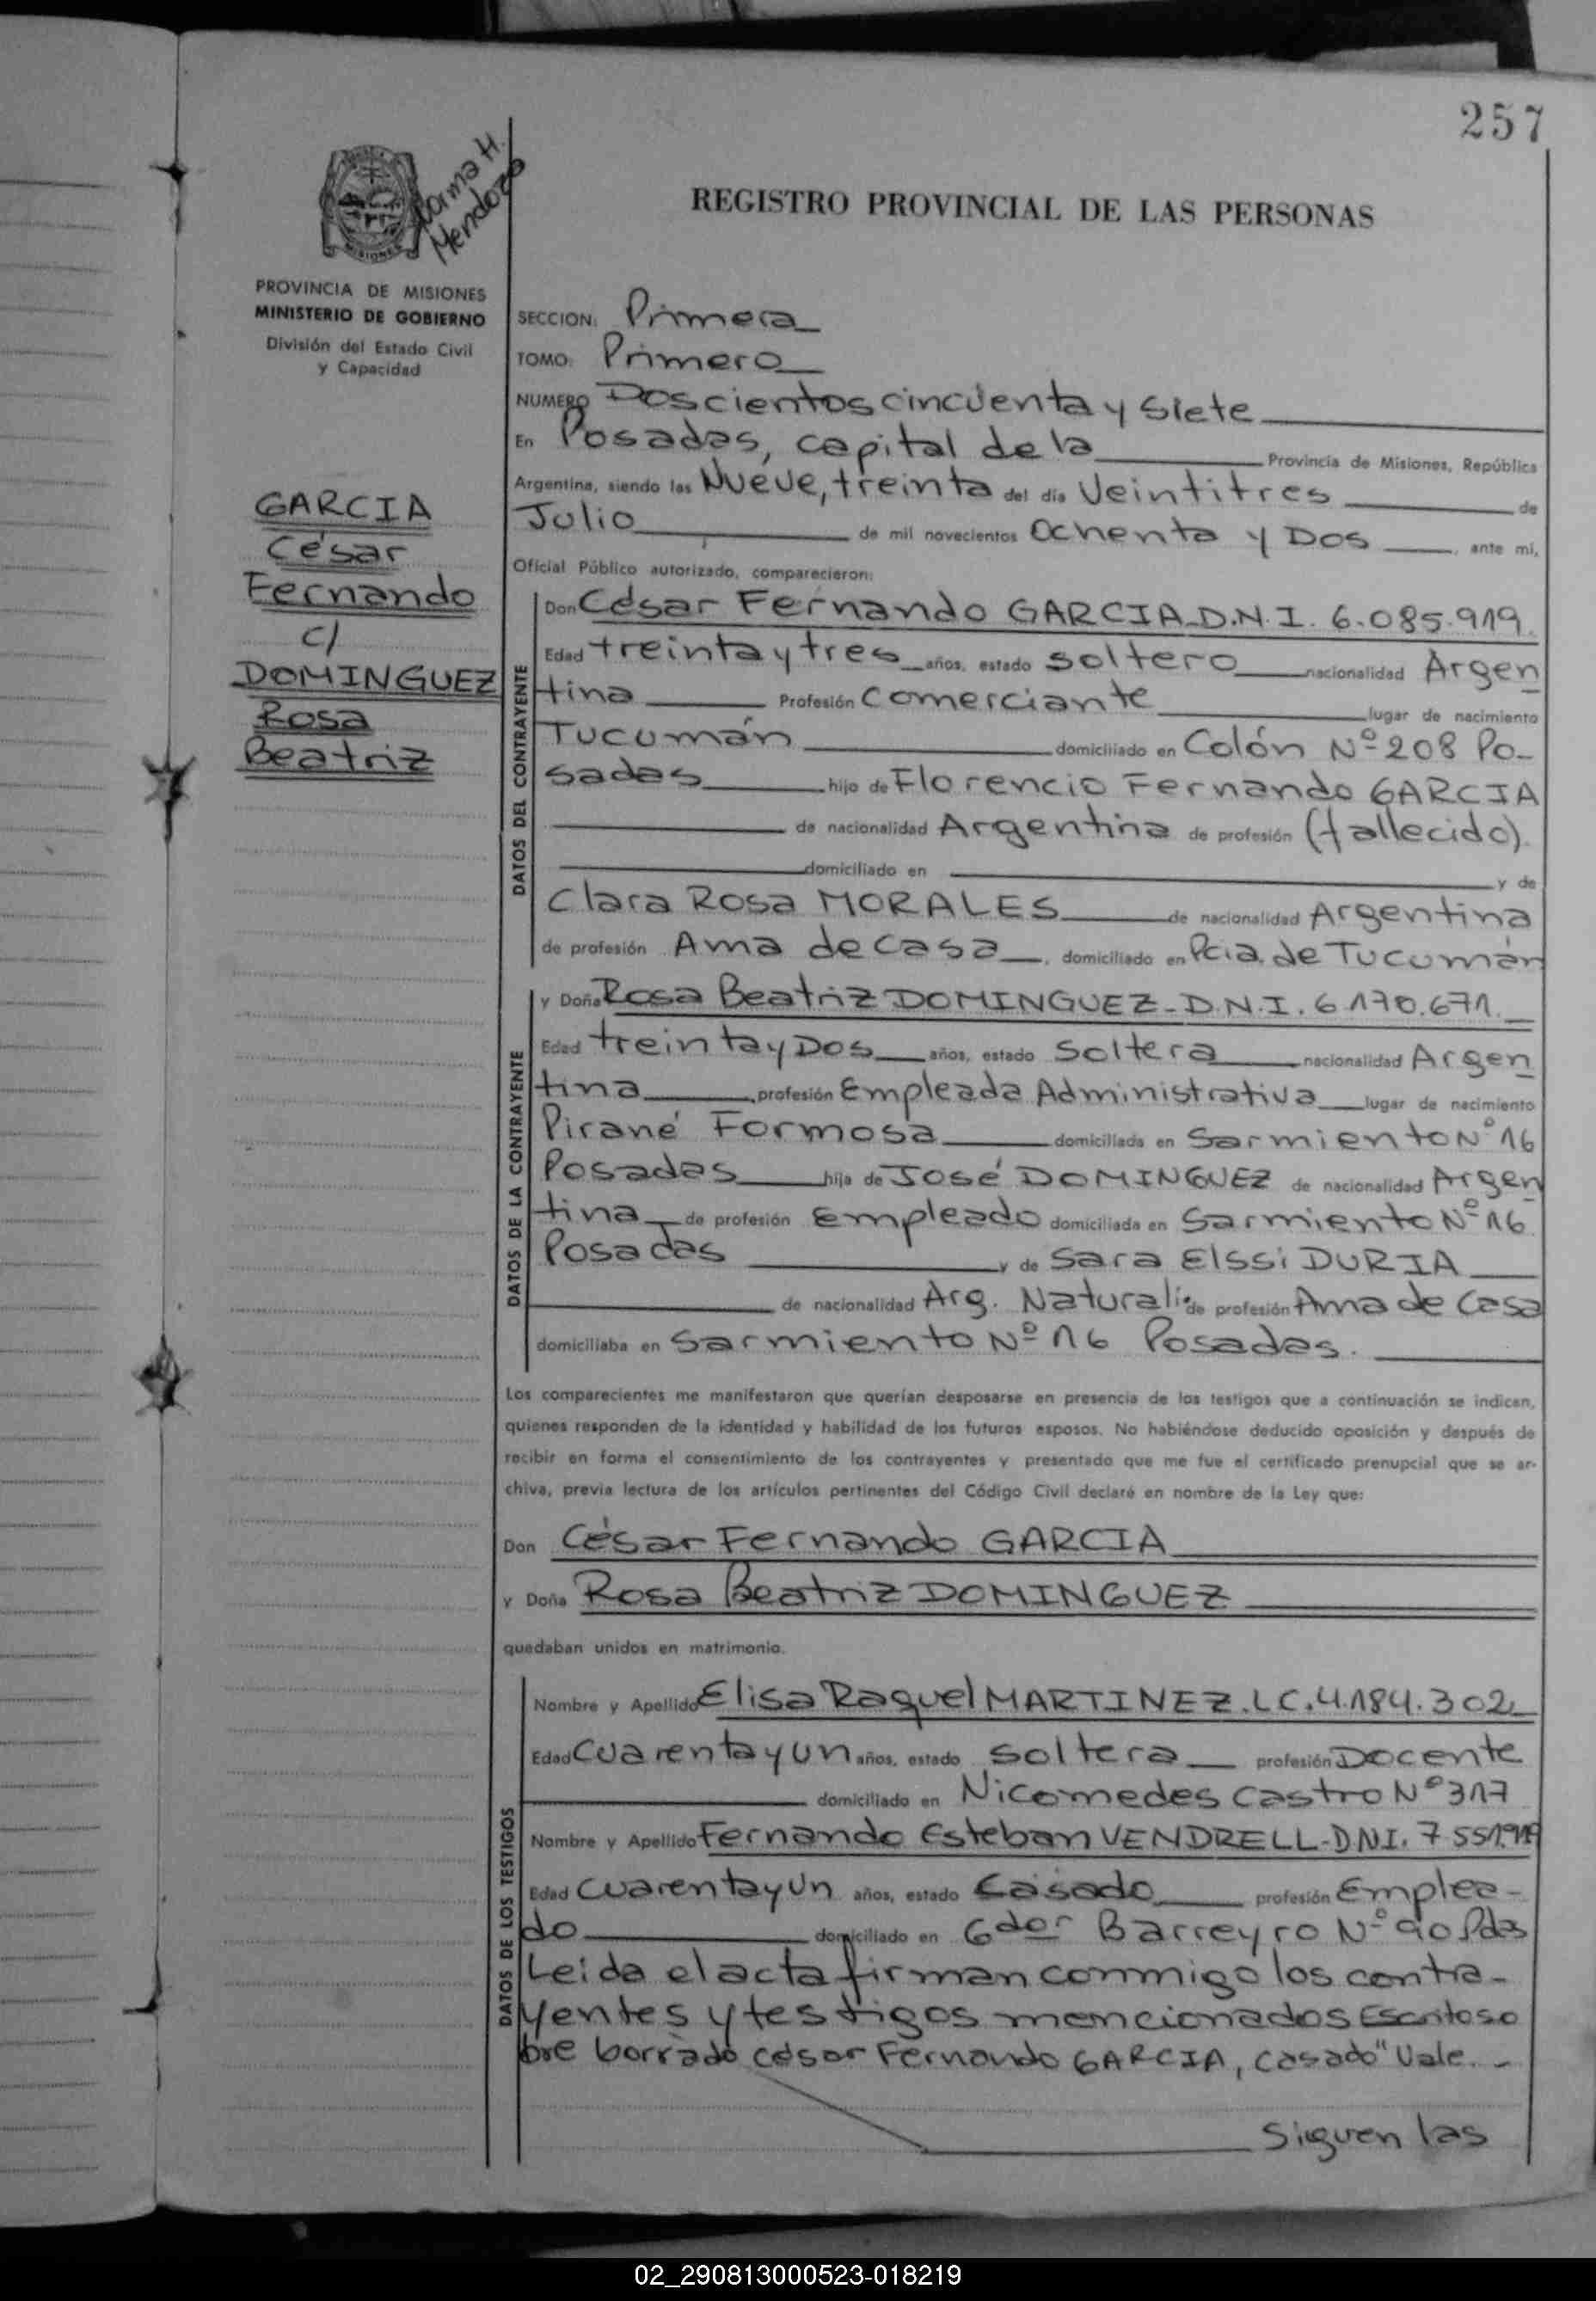 257
Norma H.
Mendoza
MISIONES
REGISTRO PROVINCIAL DE LAS PERSONAS
PROVINCIA DE MISIONES
MINISTERIO DE GOBIERNO
División del Estado Civil
y Capacidad
GARCIA
César
Fernando
c/
DOMINGUEZ
Rosa
Beatriz
SECCION: Primera
TOMO: Primero
NUMERO Doscientos cincuenta y siete
En Posadas, capital de la Provincia de Misiones, República
Argentina, siendo las Nueve, treinta del día Veintitres de
Julio de mil novecientos Ochenta y Dos, ante mí,
Oficial Público autorizado, comparecieron:
DATOS DEL CONTRAYENTE
Don César Fernando GARCIA-D.N.I. 6.085.919.
Edad treinta y tres años, estado soltero nacionalidad Argen
tina Profesión Comerciante lugar de nacimiento
Tucumán domiciliado en Colón Nº 208 Po-
sadas hijo de Florencio Fernando GARCIA
de nacionalidad Argentina de profesión (fallecido).
domiciliado en y de
Clara Rosa MORALES de nacionalidad Argentina
de profesión Ama de casa, domiciliado en Pcia. de Tucumán
DATOS DE LA CONTRAYENTE
y Doña Rosa Beatriz DOMINGUEZ-D.N.I. 6.170.671.
Edad treinta y Dos años, estado soltera nacionalidad Argen
tina, profesión Empleada Administrativa lugar de nacimiento
Pirané Formosa domiciliada en Sarmiento Nº 16
Posadas hija de José DOMINGUEZ de nacionalidad Argen
tina de profesión Empleado domiciliada en Sarmiento Nº 16
Posadas y de Sara Elssi DURIA
de nacionalidad Arg. Naturali. de profesión Ama de Casa
domiciliaba en Sarmiento Nº 16 Posadas.
Los comparecientes me manifestaron que querían desposarse en presencia de los testigos que a continuación se indican,
quienes responden de la identidad y habilidad de los futuros esposos. No habiéndose deducido oposición y después de
recibir en forma el consentimiento de los contrayentes y presentado que me fue el certificado prenupcial que se ar-
chiva, previa lectura de los artículos pertinentes del Código Civil declaré en nombre de la Ley que:
Don César Fernando GARCIA
y Doña Rosa Beatriz DOMINGUEZ
quedaban unidos en matrimonio.
DATOS DE LOS TESTIGOS
Nombre y Apellido Elisa Raquel MARTINEZ. L C. 4.184.302
Edad Cuarenta y un años, estado soltera profesión Docente
domiciliado en Nicomedes Castro Nº 317
Nombre y Apellido Fernando Esteban VENDRELL-D.N.I. 7.551.919
Edad Cuarenta y un años, estado Casado profesión Emplea-
do domiciliado en Gdor Barreyro Nº 90 Pdas
Leida el acta firman conmigo los contra-
yentes y testigos mencionados Escrito so
bre borrado César Fernando GARCIA, casado" Vale.-
Siguen las
02_290813000523-018219